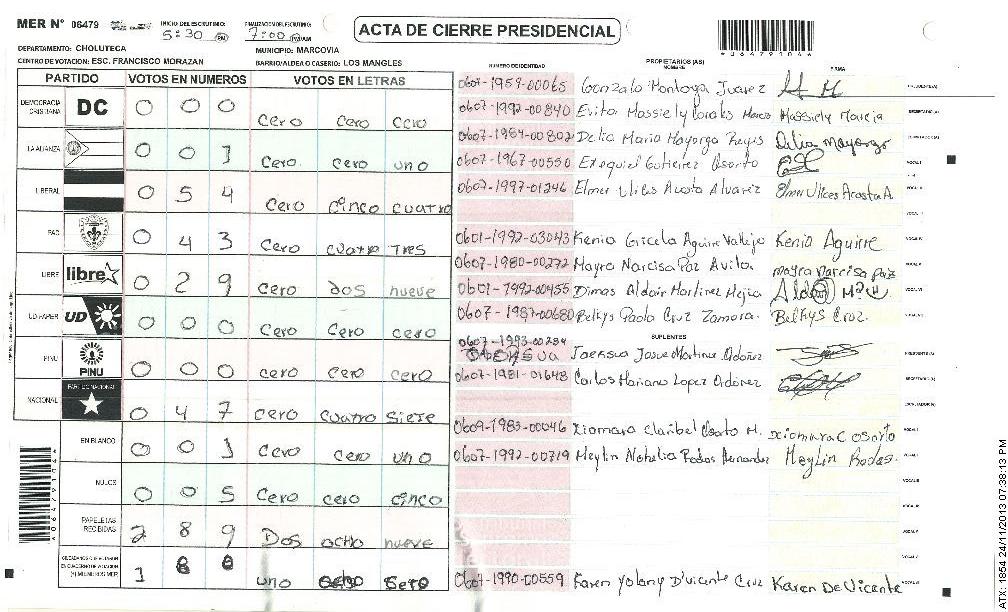 MER Nº 06479
INICIO DEL ESCRUTINIO:
5:30 PM
FINALIZACION DEL ESCRUTINIO:
7:00 PM/AM
ACTA DE CIERRE PRESIDENCIAL
DEPARTAMENTO: CHOLUTECA
MUNICIPIO: MARCOVIA
CENTRO DE VOTACION: ESC. FRANCISCO MORAZAN
BARRIO/ALDEA O CASERIO: LOS MANGLES
PARTIDO VOTOS EN NUMEROS VOTOS EN LETRAS
DEMOCRACIA CRISTIANA DC 0 0 0 cero cero cero
LA ALIANZA 0 0 1 cero cero uno
LIBERAL 0 5 4 cero cinco cuatro
PAC 0 4 3 cero cuatro Tres
LIBRE libre 0 2 9 cero dos nueve
UD FAPER UD 0 0 0 cero cero cero
PINU PINU 0 0 0 cero cero cero
NACIONAL PARTIDO NACIONAL 0 4 7 cero cuatro siete
EN BLANCO 0 0 1 cero cero uno
NULOS 0 0 5 cero cero cinco
PAPELETAS RECIBIDAS 2 8 9 Dos ocho nueve
CIUDADANOS QUE VOTARON EN CUADERNO DE VOTACION (+) MIEMBROS MER 1 8 uno siete
NUMERO DE IDENTIDAD PROPIETARIOS (AS) NOMBRE FIRMA
0607-1959-00065 Gonzalo Montoya Juarez PRESIDENTE(A)
0607-1992-00840 Massiely Marcia SECRETARIO(A)
0607-1984-00802 Delia Maria Mayorga Reyes Delia Mayorga
0607-1967-00550 Exequiel Gutierez Osorto VOCAL I
0607-1997-01246 Elmer Ulices Acosta Alvarez Elmer Ulices Acosta A. VOCAL II
0601-1992-03043 Kenia Gicela Aguire Vallejo Kenia Aguirre
0607-1980-00272 Mayra Narcisa Paz Avila. mayra Narcisa Paz
0601-1992-00455 Dimas Aldair Martinez Mejia
0607-1987-00680 Belkys Paola Cruz Zamora. Belkys Cruz.
SUPLENTES
0607-1993-00284 Josue Martinez Ordoñez PRESIDENTE(A)
0607-1981-01648 Carlos Mariano Lopez Ordoñez SECRETARIO(A)
ESCRUTADOR(A)
0609-1983-00046 Xiomara Claribel Osorto M. Xiomara C Osorto VOCAL I
0607-1992-00719 Heylin Nohelia Rodas Hernandez Heylin Rodas.
0607-1990-00559 Karen Yolany D'vicente Cruz Karen De Vicente
064791046
ATX: 1854 24/11/2013 07:38:13 PM